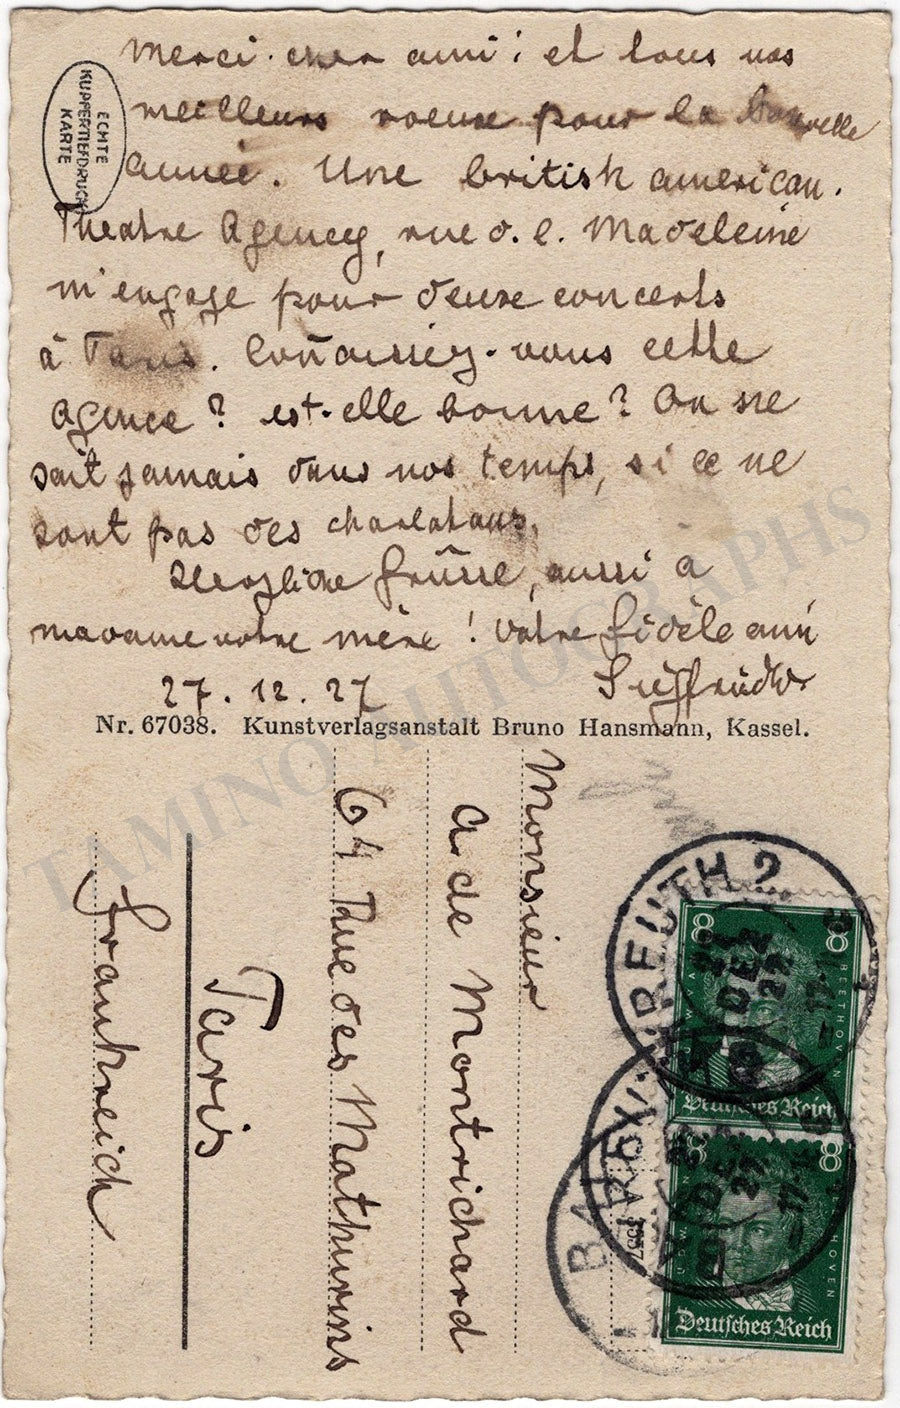 merci cher ami; et tous nos
meilleurs voeux pour la nouvelle
année. Une british american.
Theatre Agency, rue d. l. Madeleine
m'engage pour deux concerts
à Paris. Connaissez-vous cette
Agence? est-elle bonne? On ne
sait jamais dans nos temps, si ce ne
sont pas des charlatans.
Herzliche Grüsse, aussi à
madame votre mère! Votre fidèle ami
27.12.27
ECHTE
KUPFERTIEFDRUCK
KARTE
Nr. 67038. Kunstverlagsanstalt Bruno Hansmann, Kassel.
Monsieur
A. de Montrichard
64 Rue des Mathurins
Paris
Frankreich
BAYREUTH 2
27 DEZ
27
17-
8 8
BEETHOVEN
Deutsches Reich
BAYREUTH
DEZ
27
17-
8 8
LUDW. V. BEETHOVEN
Deutsches Reich
TAMINO AUTOGRAPHS